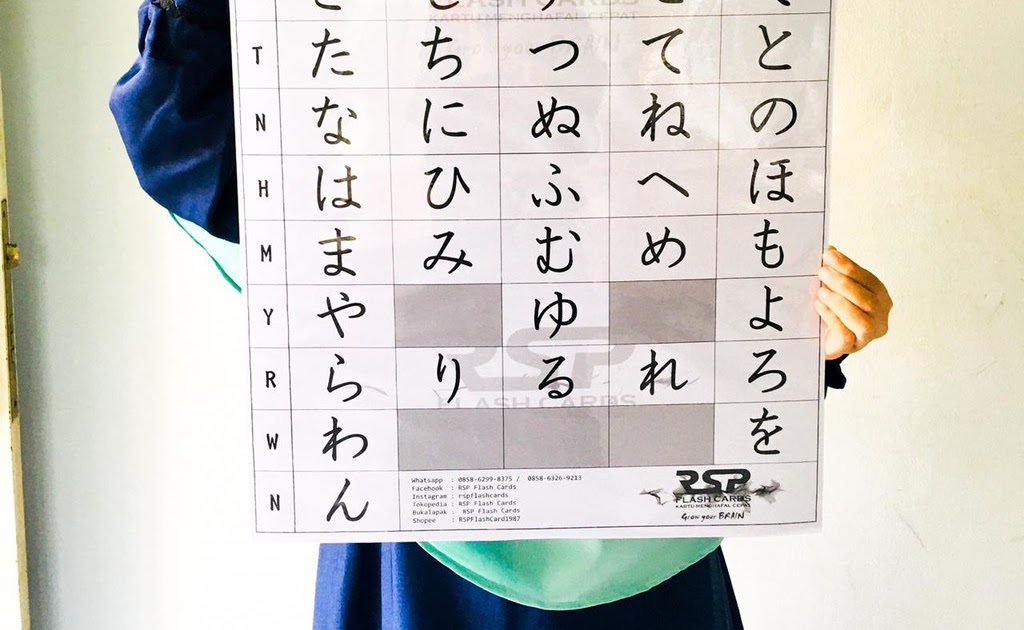 T た ち つ て と
N な に ぬ ね の
H は ひ ふ へ ほ
M ま み む め も
Y や ゆ よ
R ら り る れ ろ
W わ を
N ん
RSP
FLASH CARDS
Whatsapp : 0858-6299-8375 / 0858-6326-9213
Facebook : RSP Flash Cards
Instagram : rspflashcards
Tokopedia : RSP Flash Cards
Bukalapak : RSP Flash Cards
Shopee : RSPFlashCard1987
RSP
FLASH CARDS
KARTU MENGHAFAL CEPAT
Grow your BRAIN